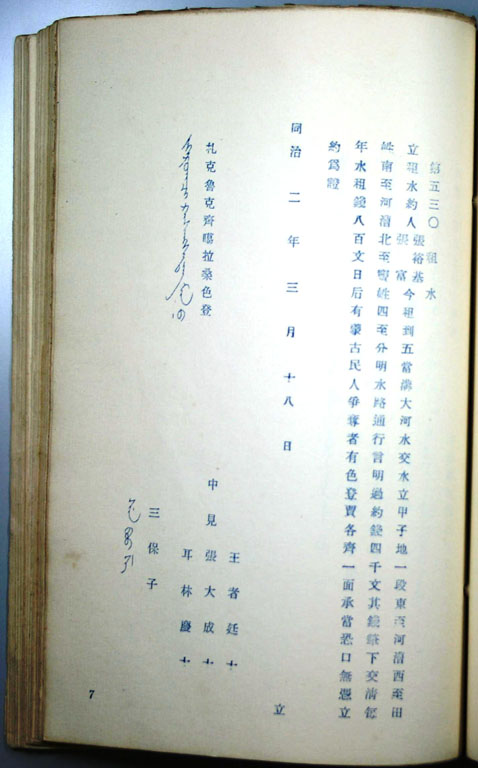 第五三〇　租水
立租水約人張裕基
張富今租到五當溝大河水交水立甲子地一段東至河漕西至田
姓南至河漕北至 姓四至分明水路通行言明過約錢四千文其錢筆下交清每
年水租錢八百文日后有蒙古民人爭奪者有色登賈各齊一面承當恐口無憑立
約爲證
同治二年三月十八日　立
王者廷十
中見張大成十
耳林慶十
扎克魯克齊噶拉桑色登
三保子
7